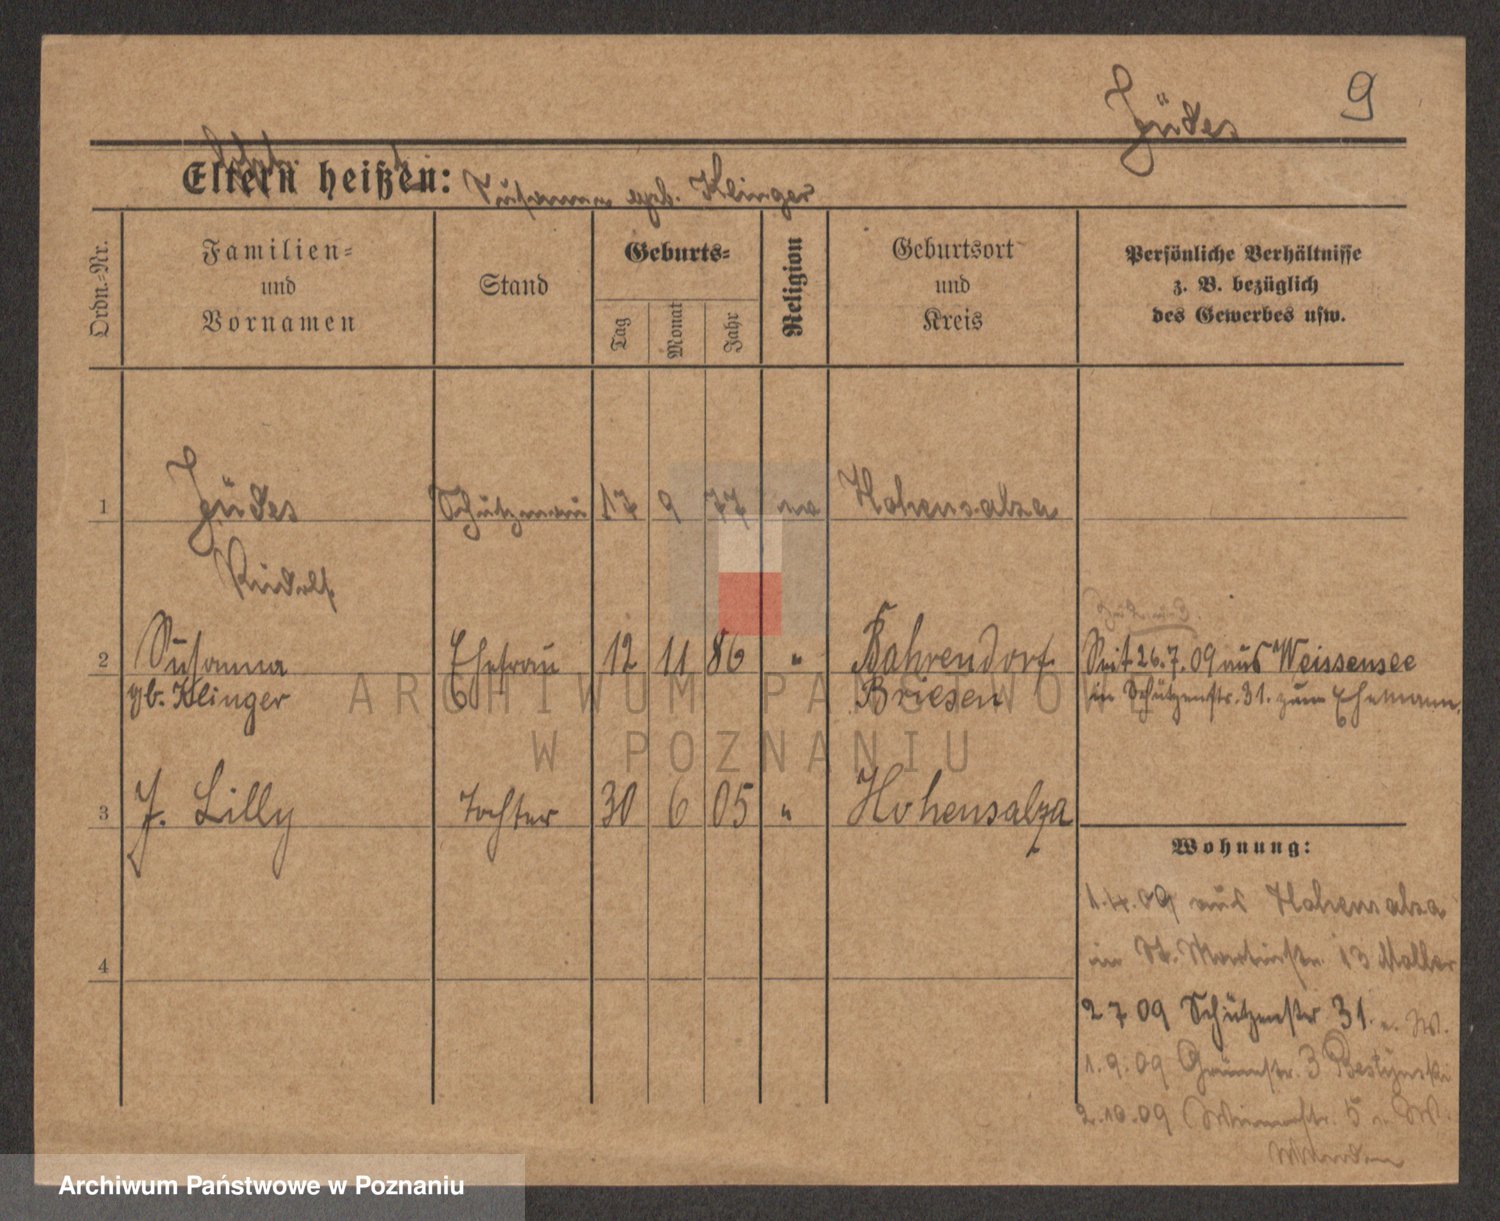 Jüdes 9
Eltern heißen: Susanna geb. Klinger
Ordn.-Nr.
Familien-
und
Vornamen
Stand
Geburts-
Tag
Monat
Jahr
Religion
Geburtsort
und
Kreis
Persönliche Verhältnisse
z. B. bezüglich
des Gewerbes usw.
1 Jüdes Schutzmann 17 9 77 Hohensalza
Rudolf
2 Susanna Ehefrau 12 11 86 " Bahrendorf Seit 26.7.09 aus Weissensee
gb. Klinger Briesen in Schützenstr. 31. zum Ehemann.
3 J. Lilly Tochter 30 6 05 " Hohensalza
Wohnung:
1.4.09 aus Hohensalza
in St. Martinstr. 13
4
2 7 09 Schützenstr 31. W.
1.9.09 3
2.10.09 5 W.
ARCHIWUM PAŃSTWOWE
W POZNANIU
Archiwum Państwowe w Poznaniu